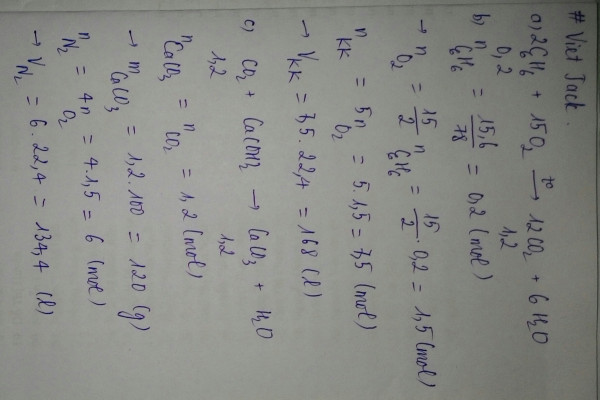 # Viet Jack.
a) 2C6H6 + 15O2 t° → 12CO2 + 6H2O
0,2 1,2
b) nC6H6 = 15,6/78 = 0,2 (mol)
→ nO2 = 15/2 nC6H6 = 15/2 . 0,2 = 1,5 (mol)
nkk = 5nO2 = 5.1,5 = 7,5 (mol)
→ Vkk = 7,5.22,4 = 168 (l)
c) CO2 + Ca(OH)2 → CaCO3 + H2O
1,2 1,2
nCaCO3 = nCO2 = 1,2 (mol)
→ mCaCO3 = 1,2.100 = 120 (g)
nN2 = 4nO2 = 4.1,5 = 6 (mol)
→ VN2 = 6.22,4 = 134,4 (l)